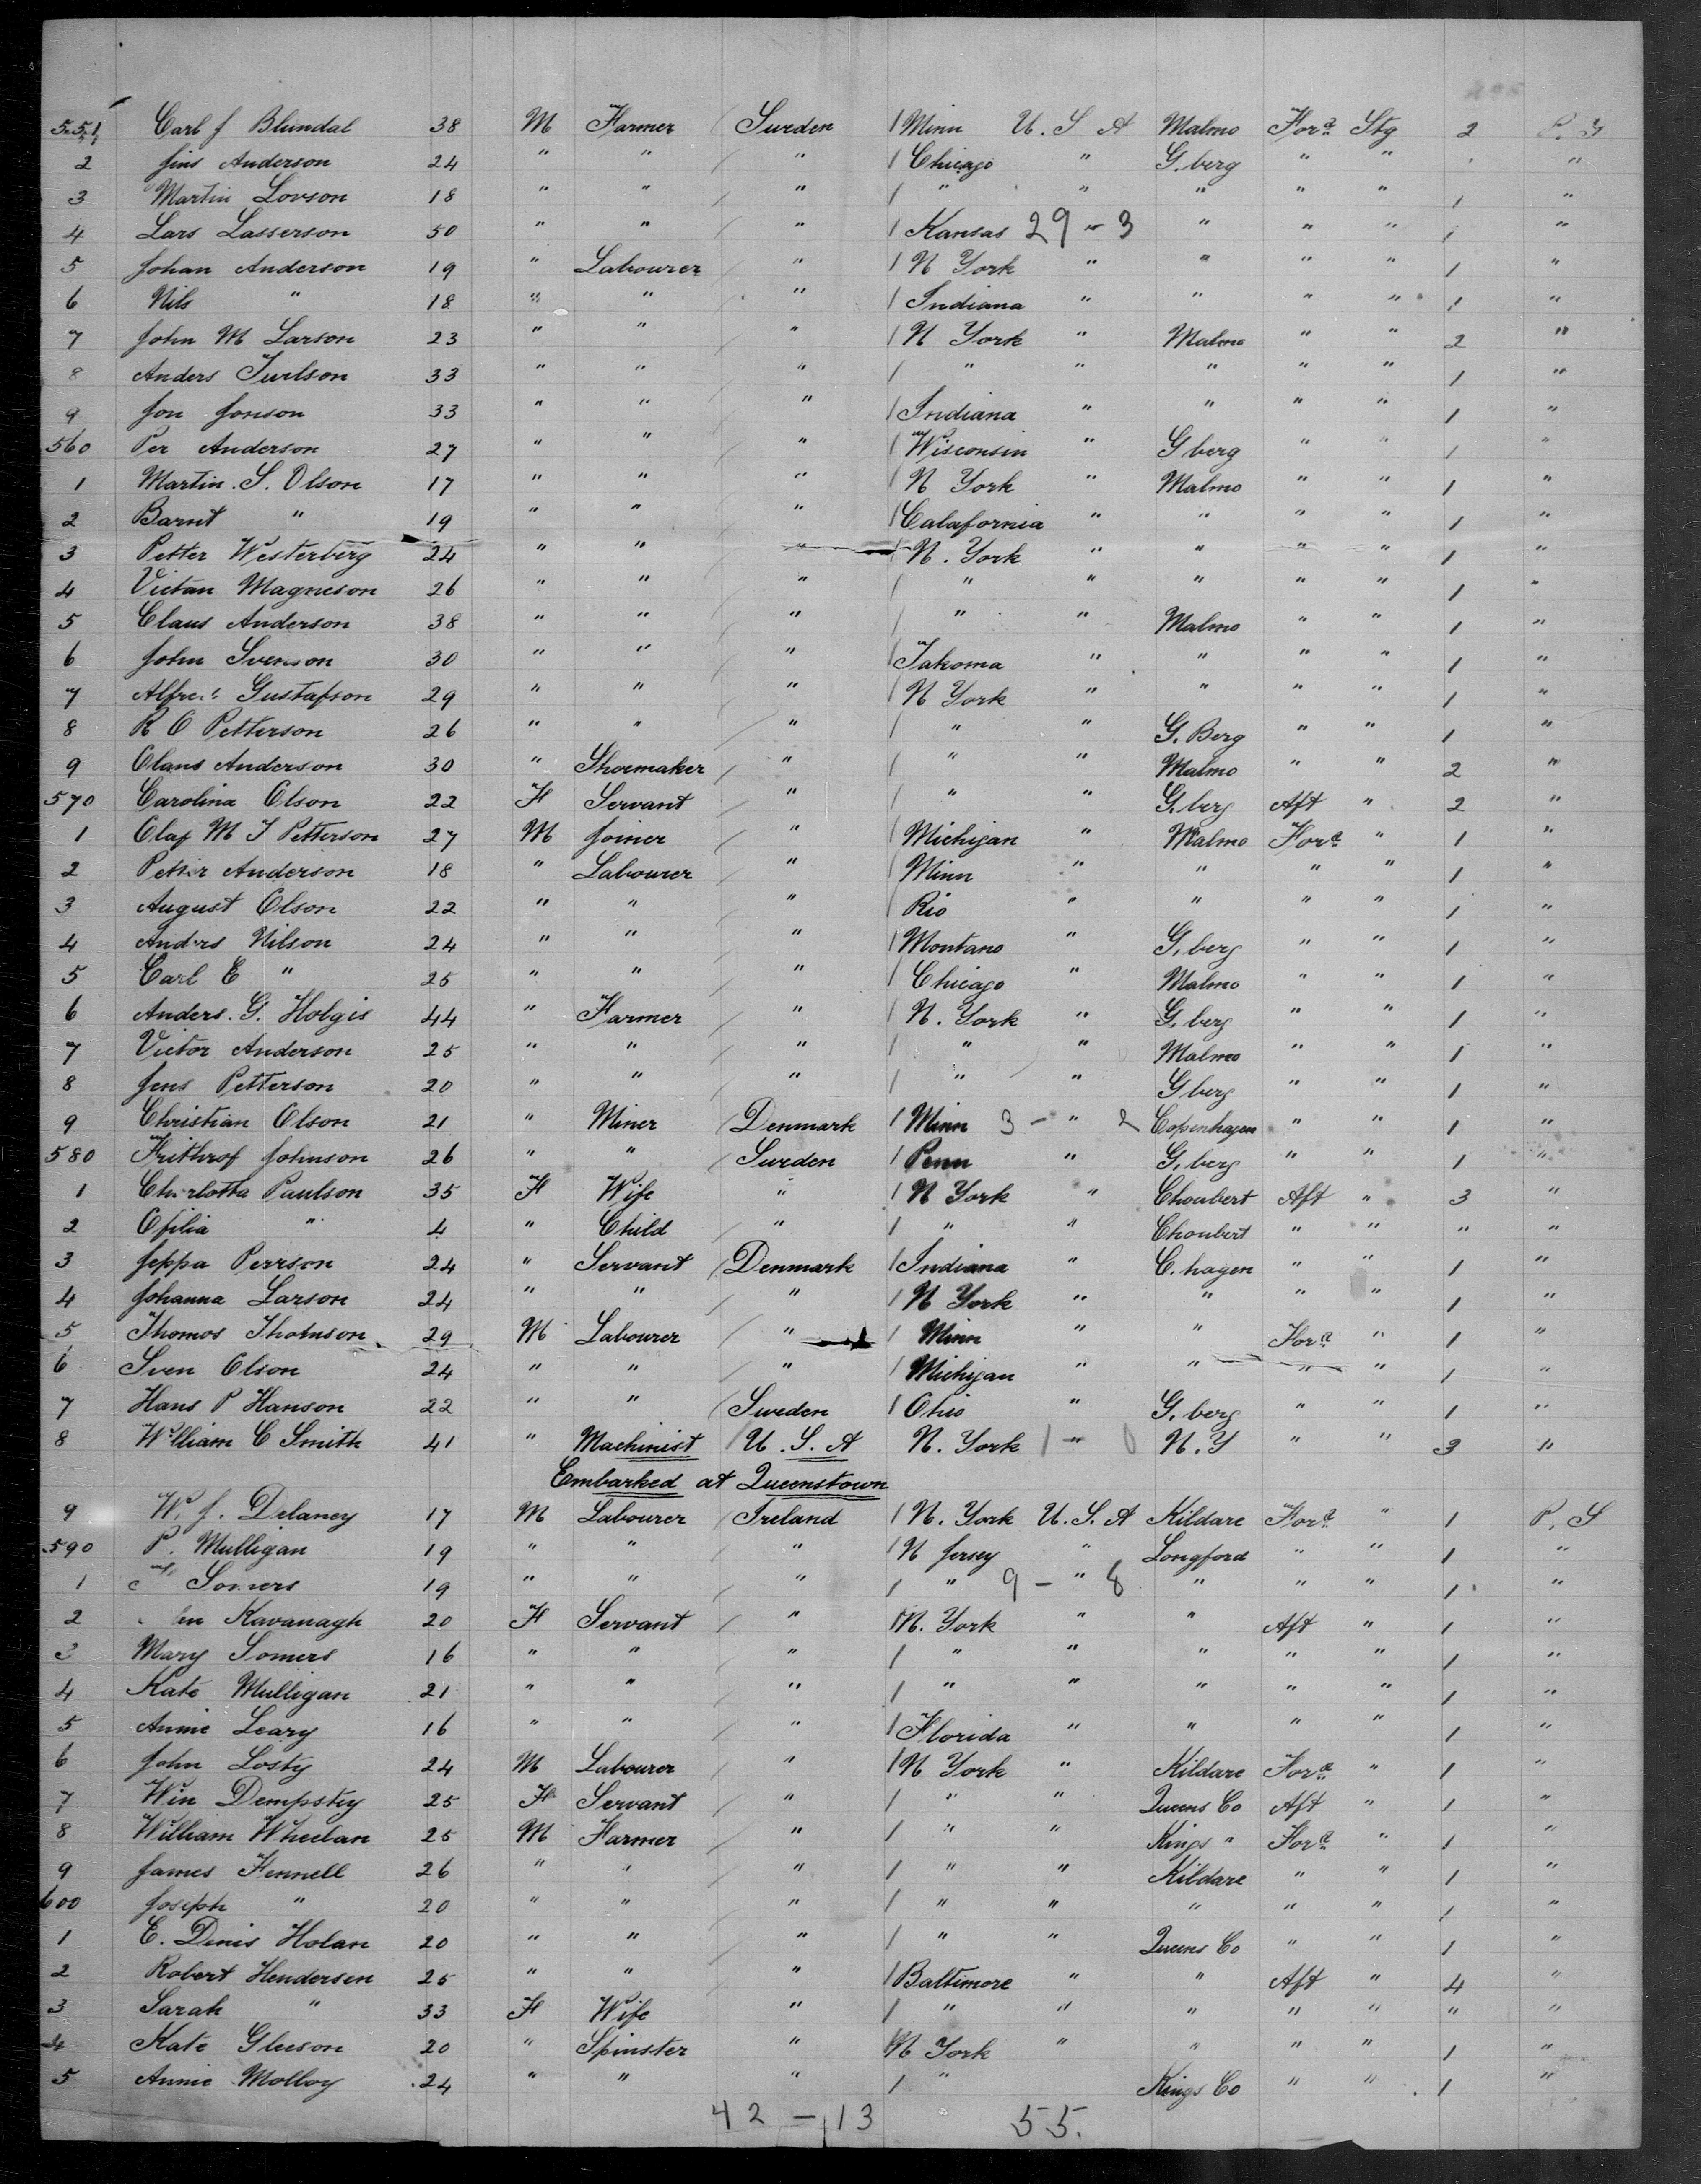 551 Carl J Blundal 38 M Farmer / Sweden / Minn U.S A Malmo Ford Stg 2 P. S
2 Jins Anderson 24 " " / " / Chicago " G. berg " " "
3 Martin Lovson 18 " " / " / " " " " " 1 "
4 Lars Lasserson 50 " " / " / Kansas 29 - 3 " " " 1 "
5 Johan Anderson 19 " Labourer / " / N York " " " " 1 "
6 Nils " 18 " " / " / Indiana " " " " 1 "
7 John M Larson 23 " " / " / N York " Malmo " " 2 "
8 Anders Iurlson 33 " " / " / " " " " " 1 "
9 Jon Jonson 33 " " / " / Indiana " " " " 1 "
560 Per Anderson 27 " " / " / Wisconsin " G berg " " 1 "
1 Martin. S. Olson 17 " " / " / N York " Malmo " " 1 "
2 Barnt " 19 " " / " / Calafornia " " " " 1 "
3 Petter Westerberg 24 " " / " / N. York " " " " 1 "
4 Victan Magneson 26 " " / " / " " " " " 1 "
5 Claus Anderson 38 " " / " / " " Malmo " " 1 "
6 John Svenson 30 " " / " / Takoma " " " " 1 "
7 Gustafson 29 " " / " / N York " " " " 1 "
8 R O Petterson 26 " " / " / " " G. Berg " " 1 "
9 Olans Anderson 30 " Shoemaker / " / " " Malmo " " 2 "
570 Carolina Olson 22 F Servant / " / " " G. berg Aft " 2 "
1 Olaf M I Petterson 27 M Joiner / " / Michigan " Malmo Ford " 1 "
2 Petter Anderson 18 " Labourer / " / Minn " " " " 1 "
3 August Olson 22 " " / " / Rio " " " " 1 "
4 Anders Nilson 24 " " / " / Montano " G. berg " " 1 "
5 Carl E " 25 " " / " / Chicago " Malmo " " 1 "
6 Anders. G. Holgis 44 " Farmer / " / N. York " G. berg " " 1 "
7 Victor Anderson 25 " " / " / " " Malmo " " 1 "
8 Jens Petterson 20 " " / " / " " G berg " " 1 "
9 Christian Olson 21 " Miner / Denmark / Minn 3 - " 2 Copenhagen " " 1 "
580 Frithrof Johnson 26 " " / Sweden / Penn " G. berg " " 1 "
1 Charlotta Paulson 35 F Wife " / N York " Choubert Aft " 3 "
2 Ofilia " 4 " Child / " / " " Choubert " " " "
3 Jeppa Perrson 24 " Servant / Denmark / Indiana " C. hagen " " 1 "
4 Johanna Larson 24 " " / " / N York " " " " 1 "
5 Thomos Thomson 29 M Labourer / " / Minn " " Ford " 1 "
6 Sven Olson 24 " " / " / Michigan " " " " 1 "
7 Hans P Hanson 22 " " / Sweden / Ohio " G. berg " " 1 "
8 William C Smith 41 " Machinist / U. S. A N. York 1 - " 0 N. Y " " 3 "
Embarked at Queenstown
9 W. J. Delaney 17 M Labourer / Ireland / N. York U. S. A Kildare Ford " 1 P. S
590 P. Mulligan 19 " " / " / N Jersey " Longford " " 1 "
1 Somers 19 " " / " / " 9 - " 8 " " " 1 "
2 Kavanagh 20 F Servant / " / N. York " " Aft " 1 "
3 Mary Somers 16 " " / " / " " " " " 1 "
4 Kate Mulligan 21 " " / " / " " " " " 1 "
5 Annie Leary 16 " " / " / Florida " " " " 1 "
6 John Losty 24 M Labourer / " / N York " Kildare Ford " 1 "
7 Win Dempstey 25 F Servant / " / " " Queens Co Aft " 1 "
8 William Wheelan 25 M Farmer / " / " " Kings " Ford " 1 "
9 James Fennell 26 " " / " / " " Kildare " " 1 "
600 Joseph " 20 " " / " / " " " " " 1 "
1 E. Denis Holan 20 " " / " / " " Queens Co " " 1 "
2 Robert Hendersen 25 " " / " / Baltimore " " Aft " 4 "
3 Sarah " 33 F Wife " / " " " " " " "
4 Kate Gleeson 20 " Spinster " / N York " " " " 1 "
5 Annie Molloy 24 " " " / " Kings Co " " 1 "
42 - 13 55.